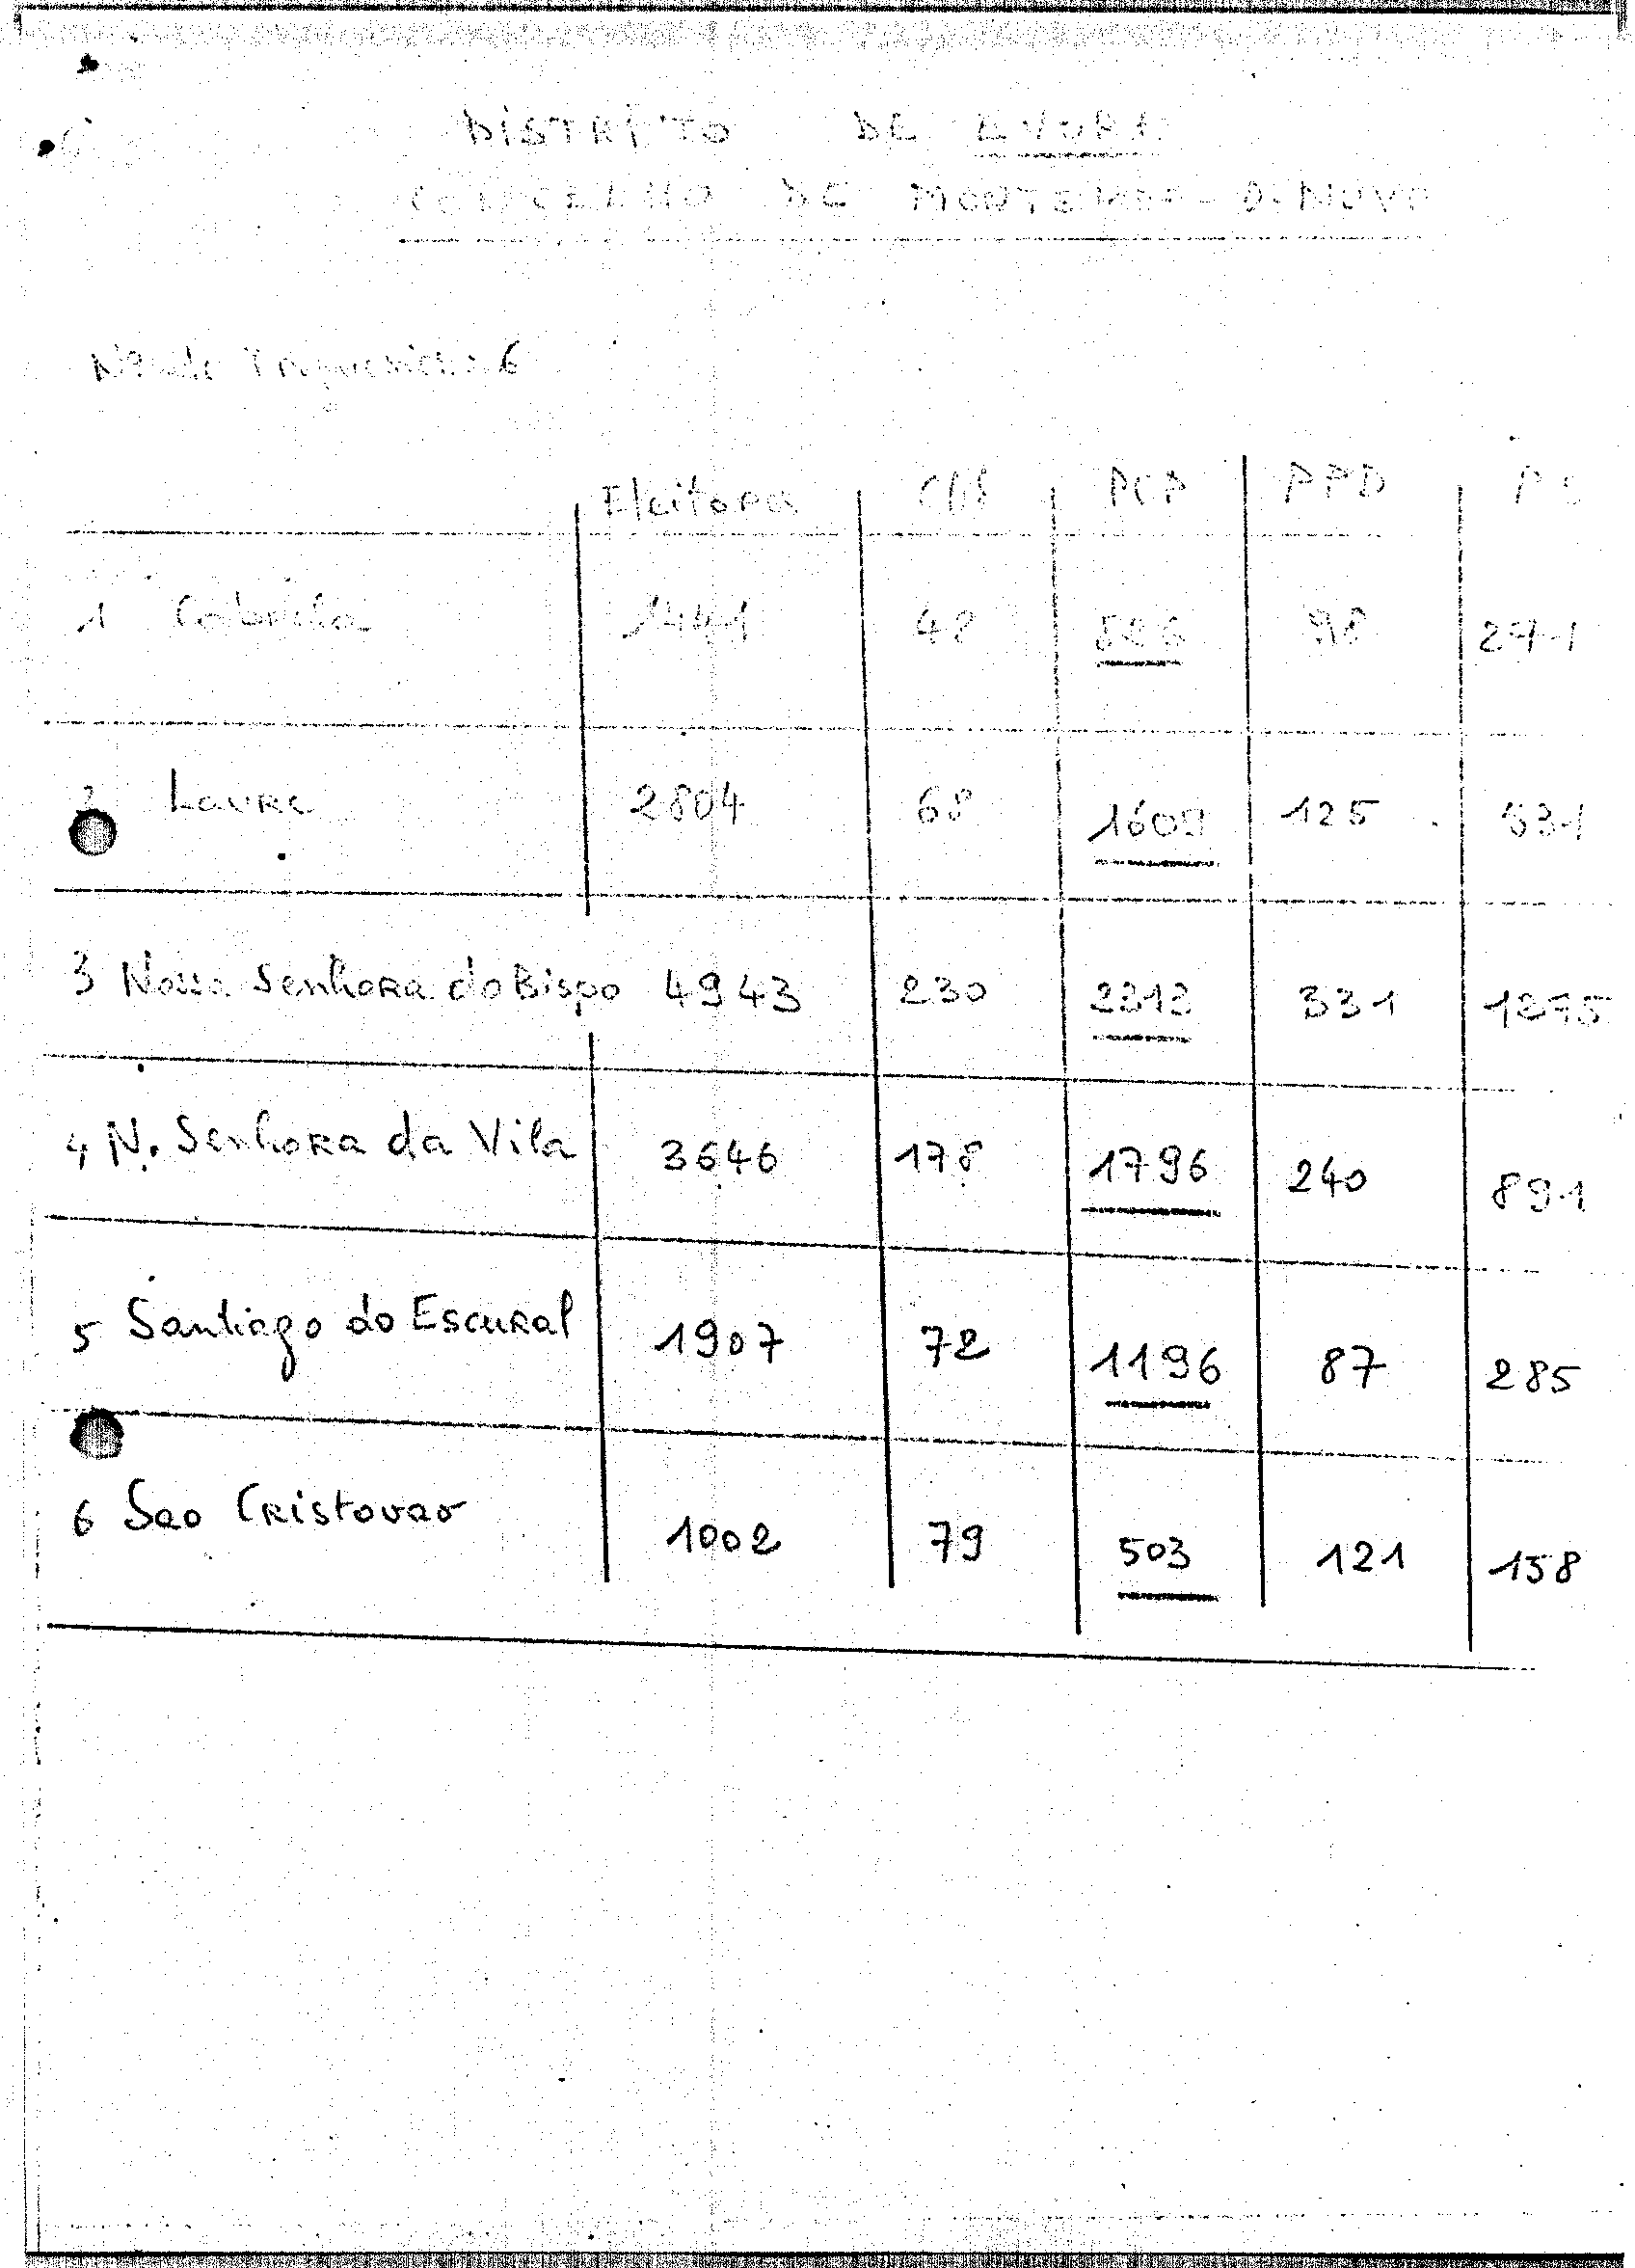 DISTRITO DE EVORA
CONCELHO DE MONTEMOR-O-NOVO
Nº de Freguesias: 6
Eleitores CDS PCP PPD PS
1 Cabrela 1441 48 98 271
2 Lavre 2804 68 1609 125 531
3 Nossa Senhora do Bispo 4943 230 2313 331 1275
4 N. Senhora da Vila 3646 178 1796 240 891
5 Santiago do Escural 1907 72 1196 87 285
6 Sao Cristovao 1002 79 503 121 158